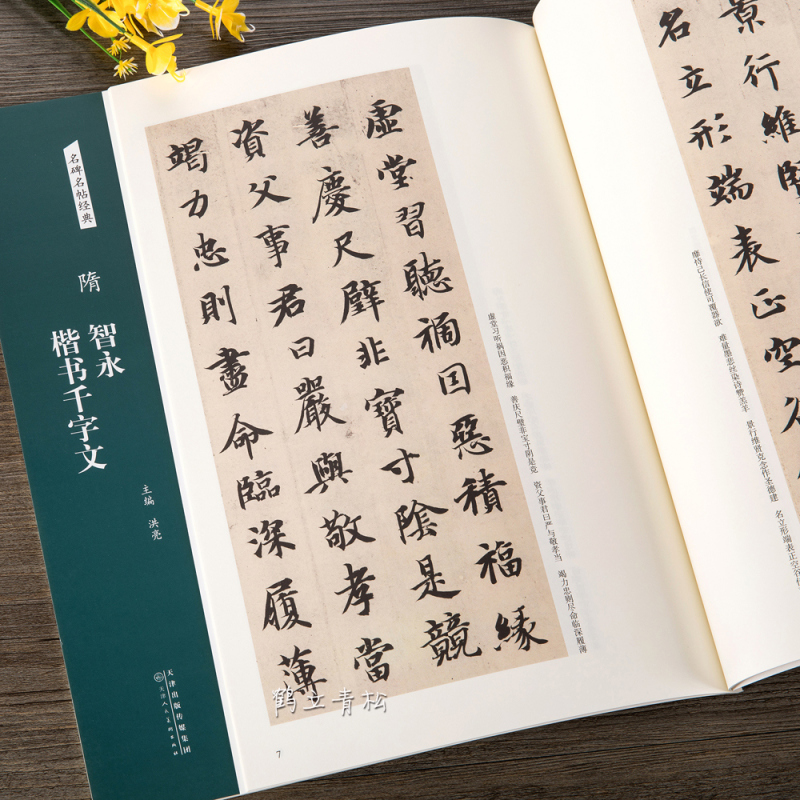 名碑名帖经典
隋
智永
楷书千字文
主编 洪亮
天津出版传媒集团
天津人民美术出版社
虛堂習聽禍因惡積福緣
善慶尺璧非寶寸陰是競
資父事君曰嚴與敬孝當
竭力忠則盡命臨深履薄
虚堂习听祸因恶积福缘 善庆尺璧非宝寸阴是竞 资父事君曰严与敬孝当 竭力忠则尽命临深履薄
7
景行維
名立形端表正空谷
靡恃己长信使可覆器欲 难量墨悲丝染诗赞羔羊 景行维贤克念作圣德建 名立形端表正空谷
鹤立青松